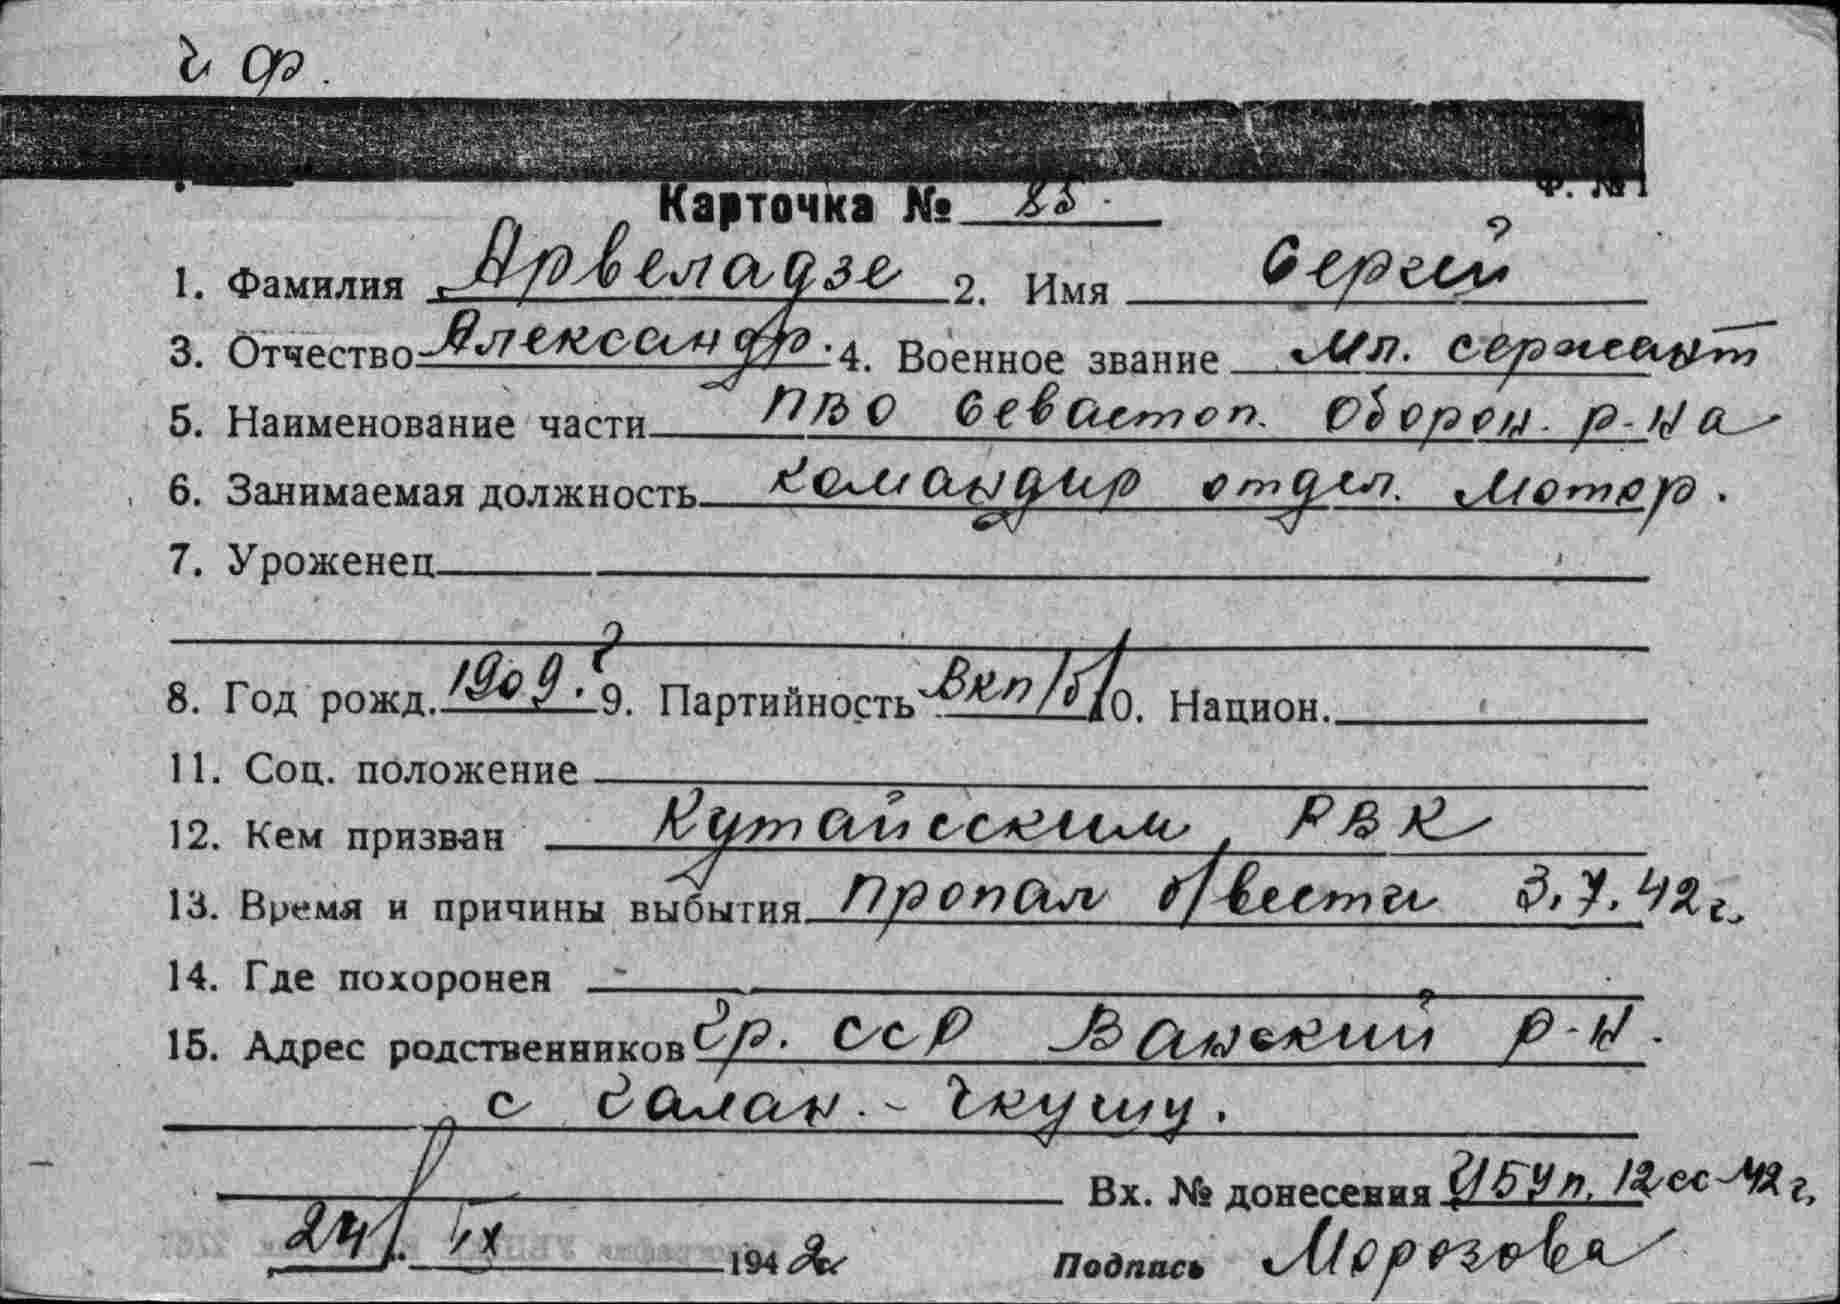 Ч ф.
Ф. № 1
Карточка № 85.
1. Фамилия Арвеладзе 2. Имя Сергей
3. Отчество Александр. 4. Военное звание Мл. сержант
5. Наименование части ПВО Севастоп. Оборон. р-на
6. Занимаемая должность командир отдел. Мотор.
7. Уроженец
8. Год рожд. 1909. г 9. Партийность ВКП/б/ 10. Национ.
11. Соц. положение
12. Кем призван Кутаисским РВК
13. Время и причины выбытия пропал б/вести 3.7.42 г.
14. Где похоронен -
15. Адрес родственников Гр. ССР Ванский р-н.
с Салан. - Чкуми.
Вх. № донесения 12сс-42 г.
24/IX 1942 Подпись Морозова